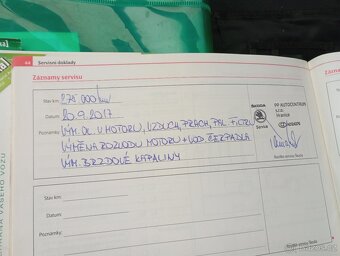 44 Servisní doklady
Záznamy servisu
Stav km: 279 000 km
Datum: 20.9.2017
Poznámky: VÝM. OL. V MOTORU, VZDUCH, PRACH, PAL. FILTRU
VÝMĚNA ROZVODU MOTORU + VOD. ČERPADLA
VÝM. BRZDOVÉ KAPALINY
Škoda
Servis
PP AUTOCENTRUM
s.r.o.
Hranice
Razítko servisu Škoda
Stav km:
Datum:
Poznámky:
Razítko servisu Škoda